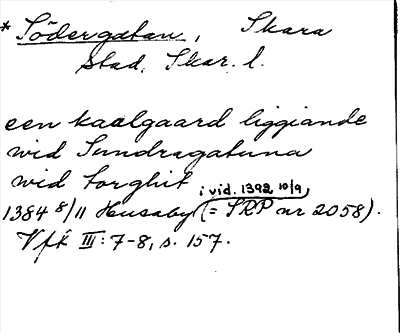 * Södergatan, Skara
stad, Skar. l.
een kaalgaard liggiande
wid Sundragatuna
wid torghit
; vid. 1392 10/9
1384 8/11 Husaby (= SRP nr 2058).
Vfk III: 7-8, s. 157.